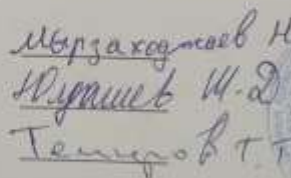 Мырзаходжаев Н
Юлдашев Ш.Д
Темиров Т Т